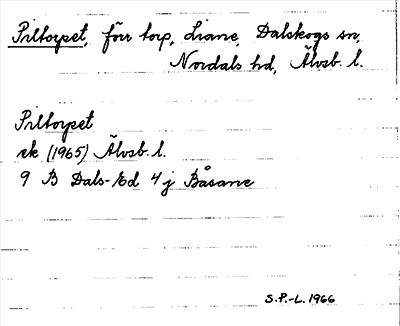 Piltorpet, förr torp, Liane, Dalskogs sn,
Nordals hd, Älvsb. l.
Piltorpet
ek (1965) Älvsb. l.
9 B Dals-Ed 4j Båsane
S.P.-L. 1966